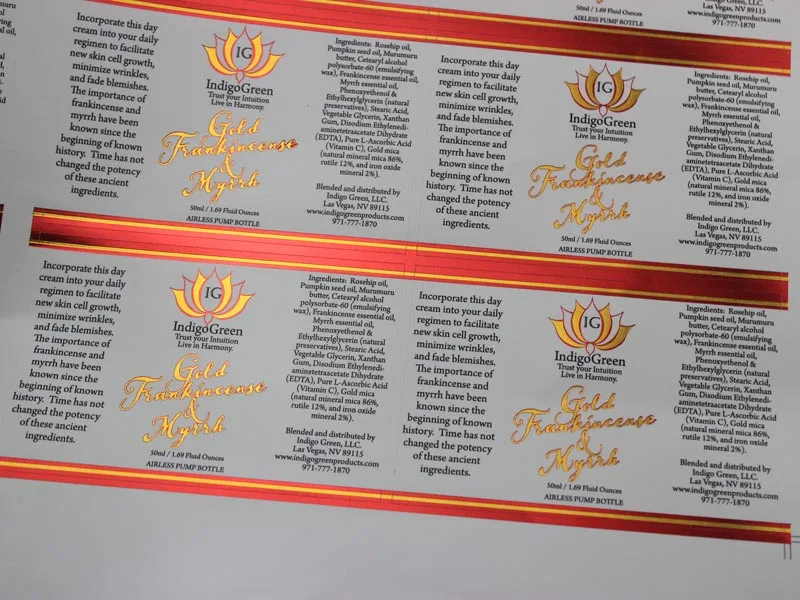 50ml / 1.69 Fluid Ounces
AIRLESS PUMP BOTTLE
Indigo Green, LLC.
Las Vegas, NV 89115
www.indigogreenproducts.com
971-777-1870
Incorporate this day
cream into your daily
regimen to facilitate
new skin cell growth,
minimize wrinkles,
and fade blemishes.
The importance of
frankincense and
myrrh have been
known since the
beginning of known
history. Time has not
changed the potency
of these ancient
ingredients.
IG
IndigoGreen
Trust your Intuition
Live in Harmony.
Gold
Frankincense
&
Myrrh
50ml / 1.69 Fluid Ounces
AIRLESS PUMP BOTTLE
Ingredients: Rosehip oil,
Pumpkin seed oil, Murumuru
butter, Cetearyl alcohol
polysorbate-60 (emulsifying
wax), Frankincense essential oil,
Myrrh essential oil,
Phenoxyethenol &
Ethylhexylglycerin (natural
preservatives), Stearic Acid,
Vegetable Glycerin, Xanthan
Gum, Disodium Ethylenedi-
aminetetraacetate Dihydrate
(EDTA), Pure L-Ascorbic Acid
(Vitamin C), Gold mica
(natural mineral mica 86%,
rutile 12%, and iron oxide
mineral 2%).
Blended and distributed by
Indigo Green, LLC.
Las Vegas, NV 89115
www.indigogreenproducts.com
971-777-1870
Incorporate this day
cream into your daily
regimen to facilitate
new skin cell growth,
minimize wrinkles,
and fade blemishes.
The importance of
frankincense and
myrrh have been
known since the
beginning of known
history. Time has not
changed the potency
of these ancient
ingredients.
IG
IndigoGreen
Trust your Intuition
Live in Harmony.
Gold
Frankincense
&
Myrrh
50ml / 1.69 Fluid Ounces
AIRLESS PUMP BOTTLE
Ingredients: Rosehip oil,
Pumpkin seed oil, Murumuru
butter, Cetearyl alcohol
polysorbate-60 (emulsifying
wax), Frankincense essential oil,
Myrrh essential oil,
Phenoxyethenol &
Ethylhexylglycerin (natural
preservatives), Stearic Acid,
Vegetable Glycerin, Xanthan
Gum, Disodium Ethylenedi-
aminetetraacetate Dihydrate
(EDTA), Pure L-Ascorbic Acid
(Vitamin C), Gold mica
(natural mineral mica 86%,
rutile 12%, and iron oxide
mineral 2%).
Blended and distributed by
Indigo Green, LLC.
Las Vegas, NV 89115
www.indigogreenproducts.com
971-777-1870
Incorporate this day
cream into your daily
regimen to facilitate
new skin cell growth,
minimize wrinkles,
and fade blemishes.
The importance of
frankincense and
myrrh have been
known since the
beginning of known
history. Time has not
changed the potency
of these ancient
ingredients.
IG
IndigoGreen
Trust your Intuition
Live in Harmony.
Gold
Frankincense
&
Myrrh
50ml / 1.69 Fluid Ounces
AIRLESS PUMP BOTTLE
Ingredients: Rosehip oil,
Pumpkin seed oil, Murumuru
butter, Cetearyl alcohol
polysorbate-60 (emulsifying
wax), Frankincense essential oil,
Myrrh essential oil,
Phenoxyethenol &
Ethylhexylglycerin (natural
preservatives), Stearic Acid,
Vegetable Glycerin, Xanthan
Gum, Disodium Ethylenedi-
aminetetraacetate Dihydrate
(EDTA), Pure L-Ascorbic Acid
(Vitamin C), Gold mica
(natural mineral mica 86%,
rutile 12%, and iron oxide
mineral 2%).
Blended and distributed by
Indigo Green, LLC.
Las Vegas, NV 89115
www.indigogreenproducts.com
971-777-1870
Incorporate this day
cream into your daily
regimen to facilitate
new skin cell growth,
minimize wrinkles,
and fade blemishes.
The importance of
frankincense and
myrrh have been
known since the
beginning of known
history. Time has not
changed the potency
of these ancient
ingredients.
IG
IndigoGreen
Trust your Intuition
Live in Harmony.
Gold
Frankincense
&
Myrrh
50ml / 1.69 Fluid Ounces
AIRLESS PUMP BOTTLE
Ingredients: Rosehip oil,
Pumpkin seed oil, Murumuru
butter, Cetearyl alcohol
polysorbate-60 (emulsifying
wax), Frankincense essential oil,
Myrrh essential oil,
Phenoxyethenol &
Ethylhexylglycerin (natural
preservatives), Stearic Acid,
Vegetable Glycerin, Xanthan
Gum, Disodium Ethylenedi-
aminetetraacetate Dihydrate
(EDTA), Pure L-Ascorbic Acid
(Vitamin C), Gold mica
(natural mineral mica 86%,
rutile 12%, and iron oxide
mineral 2%).
Blended and distributed by
Indigo Green, LLC.
Las Vegas, NV 89115
www.indigogreenproducts.com
971-777-1870